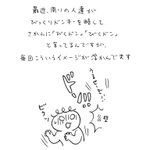 最近、周りの人達が
びっくりドンキーを略して
さかんに"びくドン""びくドン"
と言ってるんですが、
毎回こういうイメージが浮かんできます
ドン
ビクッ